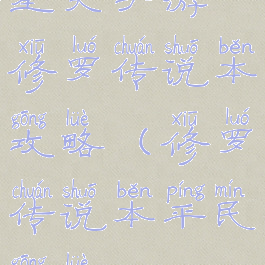 xiū luó chuán shuō běn
修罗传说本
gōng lüè xiū luó
攻略(修罗
chuán shuō běn píng mín
传说本平民
gōng lüè